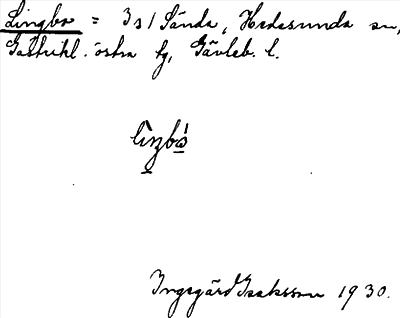 Lingbo = 3 s/ Sända, Hedesunda sn,
Gästrikl. östra tg, Gävleb. l.
Ingegärd Isaksson 1930.